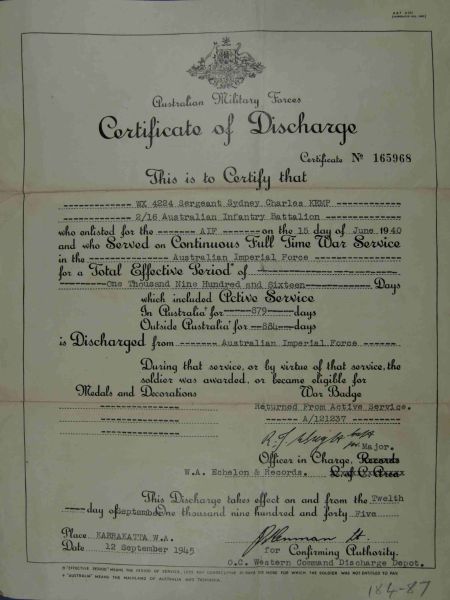 Australian Military Forces
Certificate of Discharge
Certificate No 165968
This is to Certify that
WX 4224 Sergeant Sydney Charles KEMP
2/16 Australian Infantry Battalion
who enlisted for the AIF on the 15 day of June 1940
and who Served on Continuous Full Time War Service
in the Australian Imperial Force
for a Total Effective Period* of
One Thousand Nine Hundred and Sixteen Days
which included Active Service
In Australia† for 879 days
Outside Australia† for 884 days
is Discharged from Australian Imperial Force
During that service, or by virtue of that service, the
soldier was awarded, or became eligible for
Medals and Decorations War Badge
Returned From Active Service.
A/121237
Major.
Officer in Charge, Records
W.A. Echelon & Records. L. of C. Area
This Discharge takes effect on and from the Twelfth
day of September One thousand nine hundred and forty Five
Place KARRAKATTA W.A.
Date 12 September 1945
for Confirming Authority.
O.C. Western Command Discharge Depot.
† "AUSTRALIA" MEANS THE MAINLAND OF AUSTRALIA AND TASMANIA.
184-87